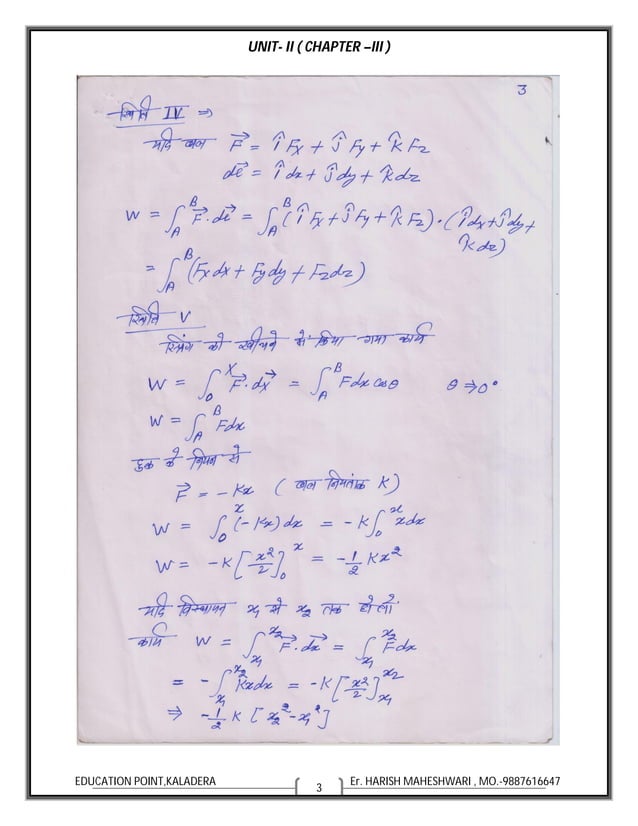 UNIT- II ( CHAPTER –III )
3
स्थिति IV ⇒
यदि बल F⃗ = îFx + ĵFy + k̂Fz
dl⃗ = îdx + ĵdy + k̂dz
W = ∫_A^B F⃗.dl⃗ = ∫_A^B (îFx + ĵFy + k̂Fz).(îdx + ĵdy +
k̂dz)
= ∫_A^B (Fxdx + Fydy + Fzdz)
स्थिति V
स्प्रिंग को खींचने में किया गया कार्य
W = ∫_0^X F⃗.dx⃗ = ∫_A^B Fdx cosθ θ ⇒ 0°
W = ∫_A^B Fdx
हुक के नियम से
F⃗ = -Kx ( बल नियतांक K )
W = ∫_0^x (-Kx)dx = -K∫_0^x xdx
W = -K[x²/2]_0^x = -1/2 Kx²
यदि विस्थापन x₁ से x₂ तक हो तो
कार्य W = ∫_x₁^x₂ F⃗.dx⃗ = ∫_x₁^x₂ Fdx
= -∫_x₁^x₂ Kxdx = -K[x²/2]_x₁^x₂
⇒ -1/2 K [x₂² - x₁²]
EDUCATION POINT,KALADERA Er. HARISH MAHESHWARI , MO.-9887616647
3